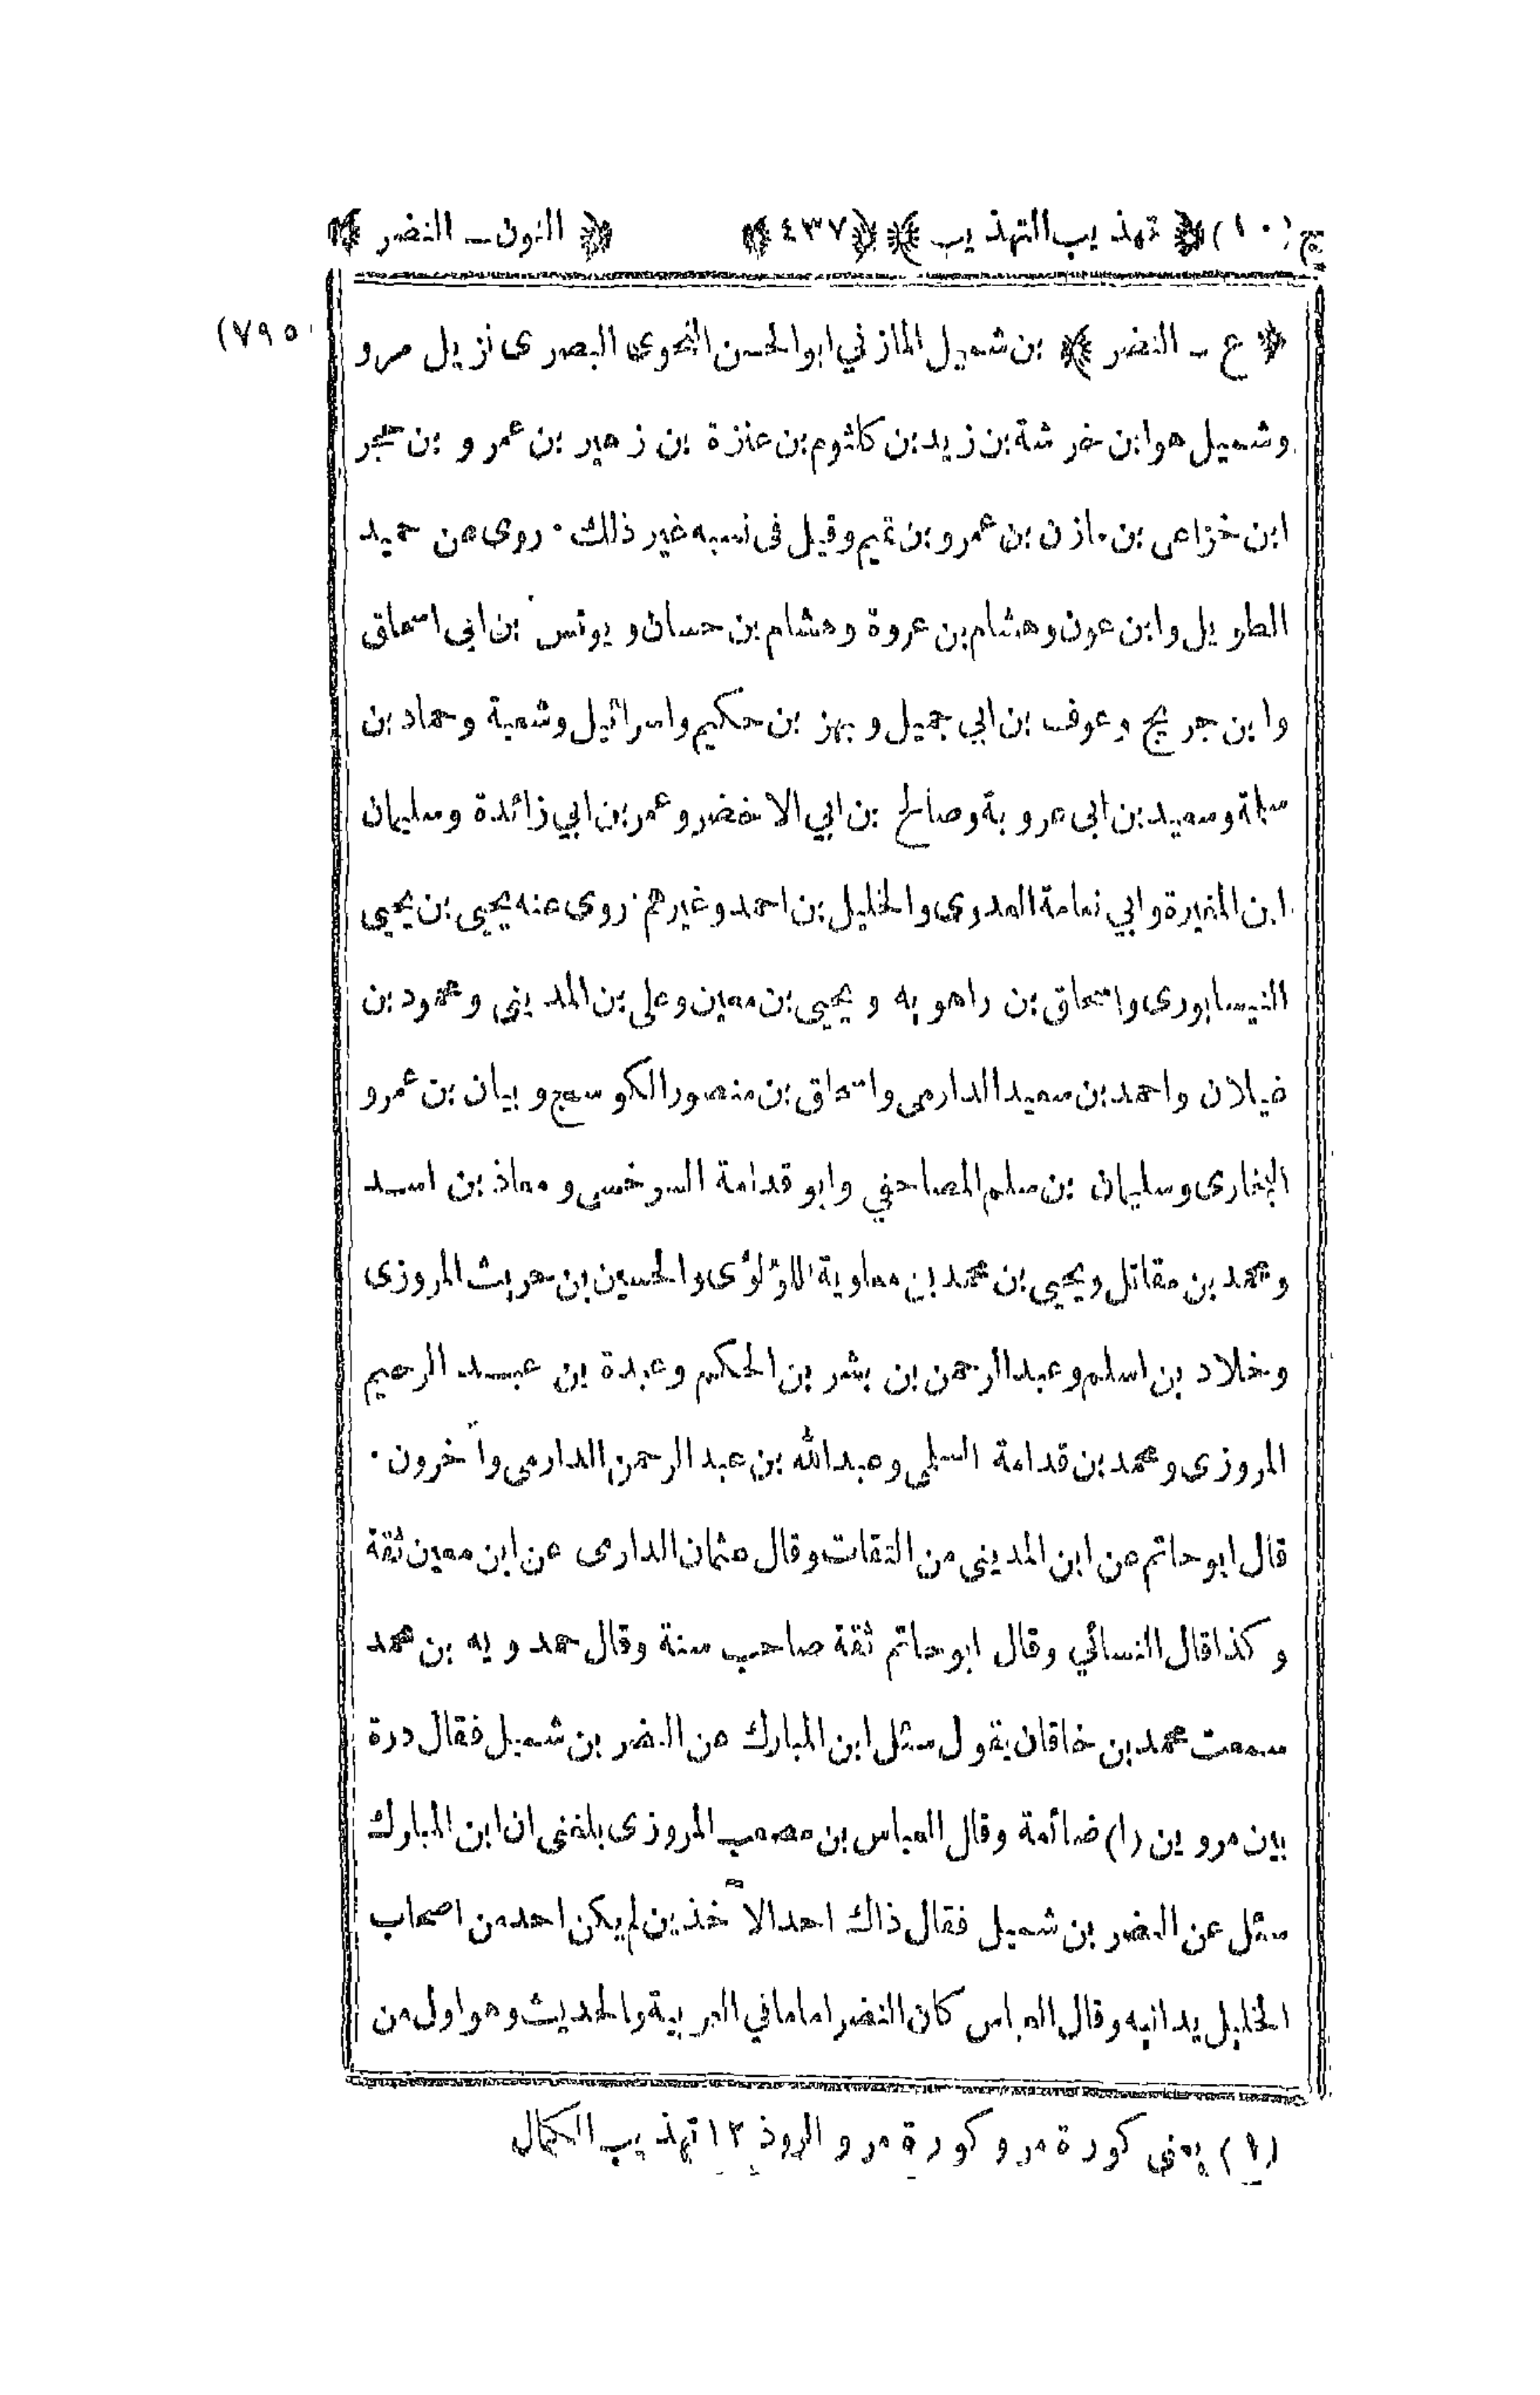 ج (١٠) ﴿ تهذيب التهذيب ﴾ ﴿٤٣٧﴾ ﴿ النون ـ النضر ﴾
(٧٩٥
﴿ ع ـ النضر ﴾ بن شميل المازني ابوالحسن النحوى البصرى نزيل مرو
وشميل هوابن خرشة بن زيد بن كلثوم بن عنزة بن زهير بن عمرو بن حجر
ابن خزاعى بن مازن بن عمرو بن تميم وقيل فى نسبه غير ذلك . روى عن حميد
الطويل وابن عون وهشام بن عروة وهشام بن حسان ويونس بن ابى اسحاق
وابن جريج وعوف بن ابي جميل وبهز بن حكيم واسرائيل وشعبة وحماد بن
سلمة وسعيد بن ابى عروبة وصالح بن ابي الاخضر وعمر بن ابي زائدة وسليمان
ابن المغيرة وابي نعامة العدوى والخليل بن احمد وغيرهم . روى عنه يحيى بن يحيى
النيسابورى واسحاق بن راهويه ويحيى بن معين وعلى بن المديني ومحمود بن
غيلان واحمد بن سعيد الدارمى واسحاق بن منصور الكوسج وبيان بن عمرو
البخارى وسليمان بن سلم المصاحفي وابو قدامة السرخسى ومعاذ بن اسد
ومحمد بن مقاتل ويحيى بن محمد بن معاوية اللؤلؤى والحسين بن حريث المروزى
وخلاد بن اسلم وعبدالرحمن بن بشر بن الحكم وعبدة بن عبد الرحيم
المروزى ومحمد بن قدامة السلمى وعبدالله بن عبد الرحمن الدارمى وآخرون .
قال ابو حاتم عن ابن المدينى من الثقات وقال عثمان الدارمى عن ابن معين ثقة
وكذا قال النسائي وقال ابو حاتم ثقة صاحب سنة وقال حمدويه بن محمد
سمعت محمد بن خاقان يقول سئل ابن المبارك عن النضر بن شميل فقال درة
بين مروين (١) ضائعة وقال العباس بن مصعب المروزى بلغنى ان ابن المبارك
سئل عن النضر بن شميل فقال ذاك احد الآخذين لم يكن احد من اصحاب
الخليل يدانيه وقال العباس كان النضر اماما في العربية والحديث وهو اول من
(١) يعنى كورة مرو كورة مرو الروذ ١٢ تهذيب الكمال